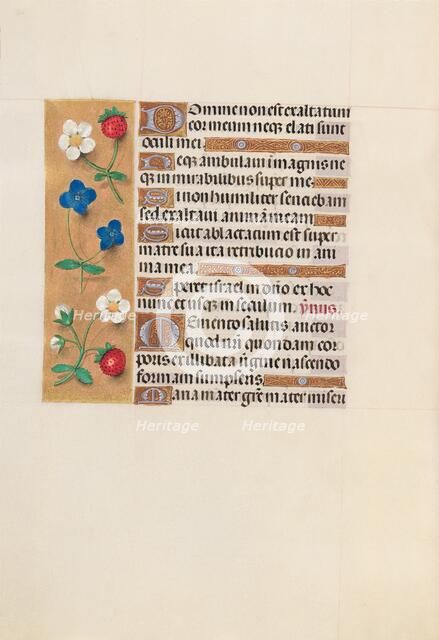 Domine non est exaltatum
cor meum neq; elati sunt
oculi mei.
Neq; ambulaui in magnis ne
q; in mirabilibus super me.
Si non humiliter senciebam
sed exaltaui animam meam
Sicut ablactatum est super
matre sua ita retributio in ani
ma mea.
Speret israel in dño ex hoc
nunc et usq; in seculum. ymnus
Memento salutis auctor
quod nr̄i quondam cor
poris ex illibata virgine nascendo
formam sumpseris
Maria mater grē mater miseri
Heritage Heritage
Heritage Heritage